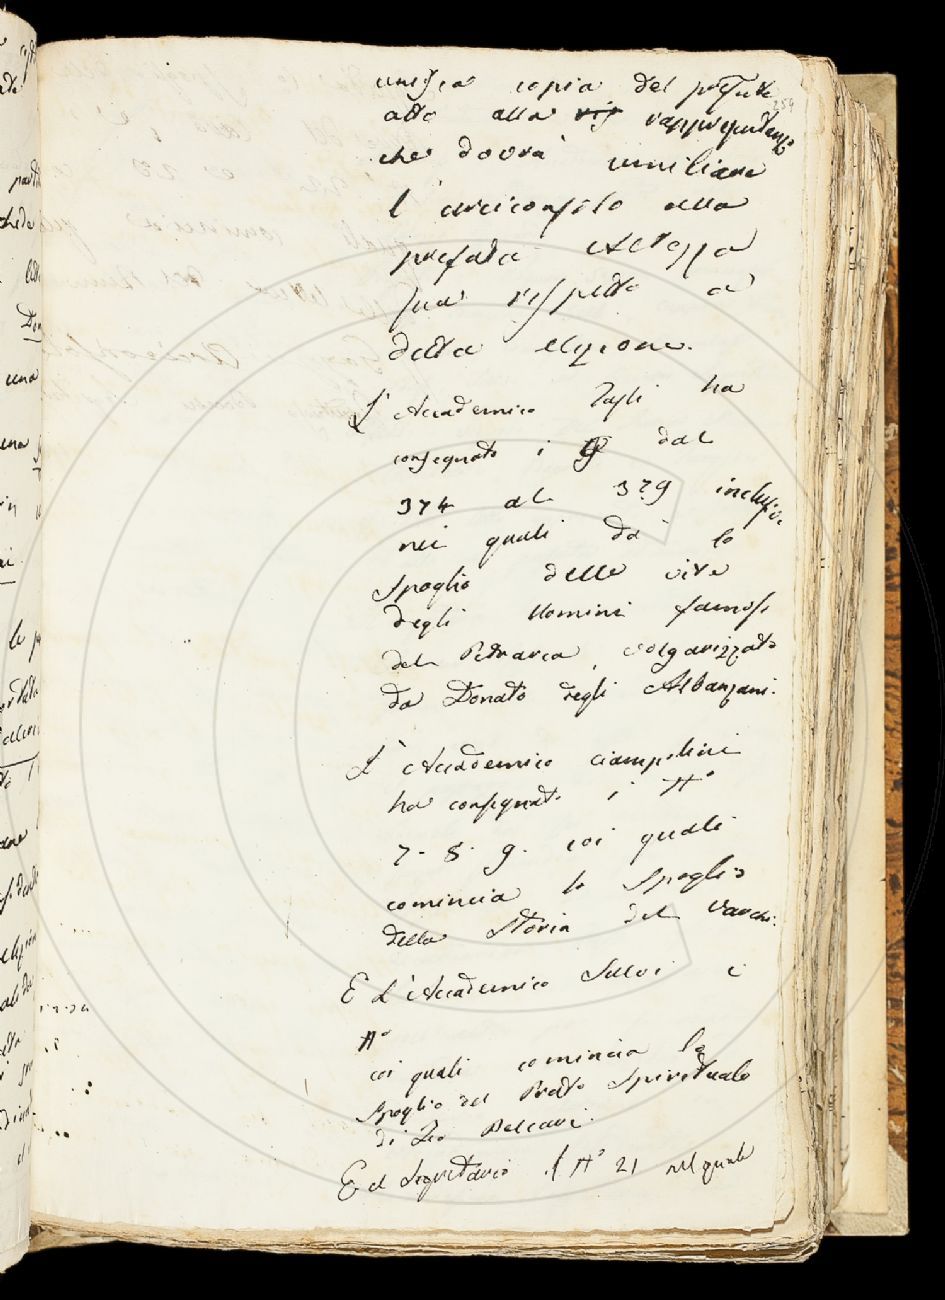 unisca copia del presente
254
atto alla rappresentanza
che dovrà umiliare
l'arciconsolo alla
prefata Altezza
sua rispetto a
detta elezione.
L'Accademico Tassi ha
consegnato i dal
374 al 379 inclusive
nei quali dà lo
Spoglio delle vite
degli Uomini famosi
del Petrarca, volgarizzato
da Donato degli Albanzani.
L'Accademico Ciampolini
ha consegnato i Nº
7. 8. 9. coi quali
comincia lo Spoglio
della Storia del Varchi.
E L'Accademico Salvi i
Nº
coi quali comincia lo
Spoglio del Prato Spirituale
di Feo Belcari.
E el Segretario il Nº 21 nel quale